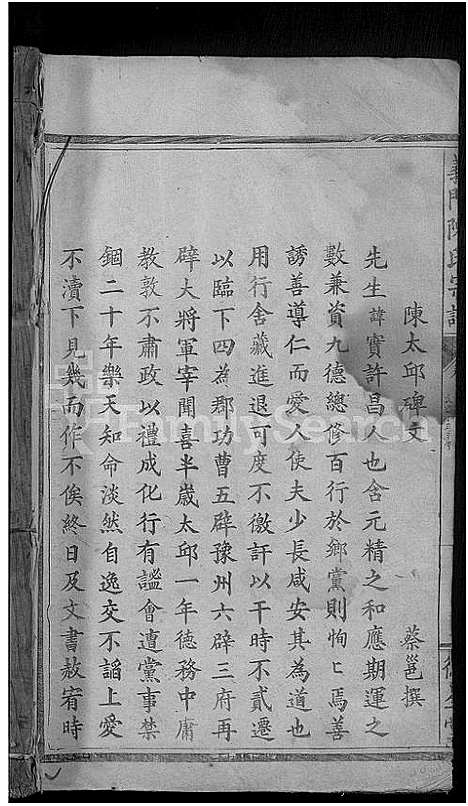 義門陳氏宗譜
陳太邱碑文
蔡邕撰
先生諱寔許昌人也含元精之和應期運之
數兼資九德總修百行於鄉黨則恂〻焉善
誘善導仁而愛人使夫少長咸安其為道也
用行舍藏進退可度不徼訐以干時不貳遷
以臨下四為郡功曹五辟豫州六辟三府再
辟大將軍宰聞喜半歲太邱一年德務中庸
教敦不肅政以禮成化行有謐會遭黨事禁
錮二十年樂天知命淡然自逸交不謟上愛
不瀆下見幾而作不俟終日及文書赦宥時
FamilySearch